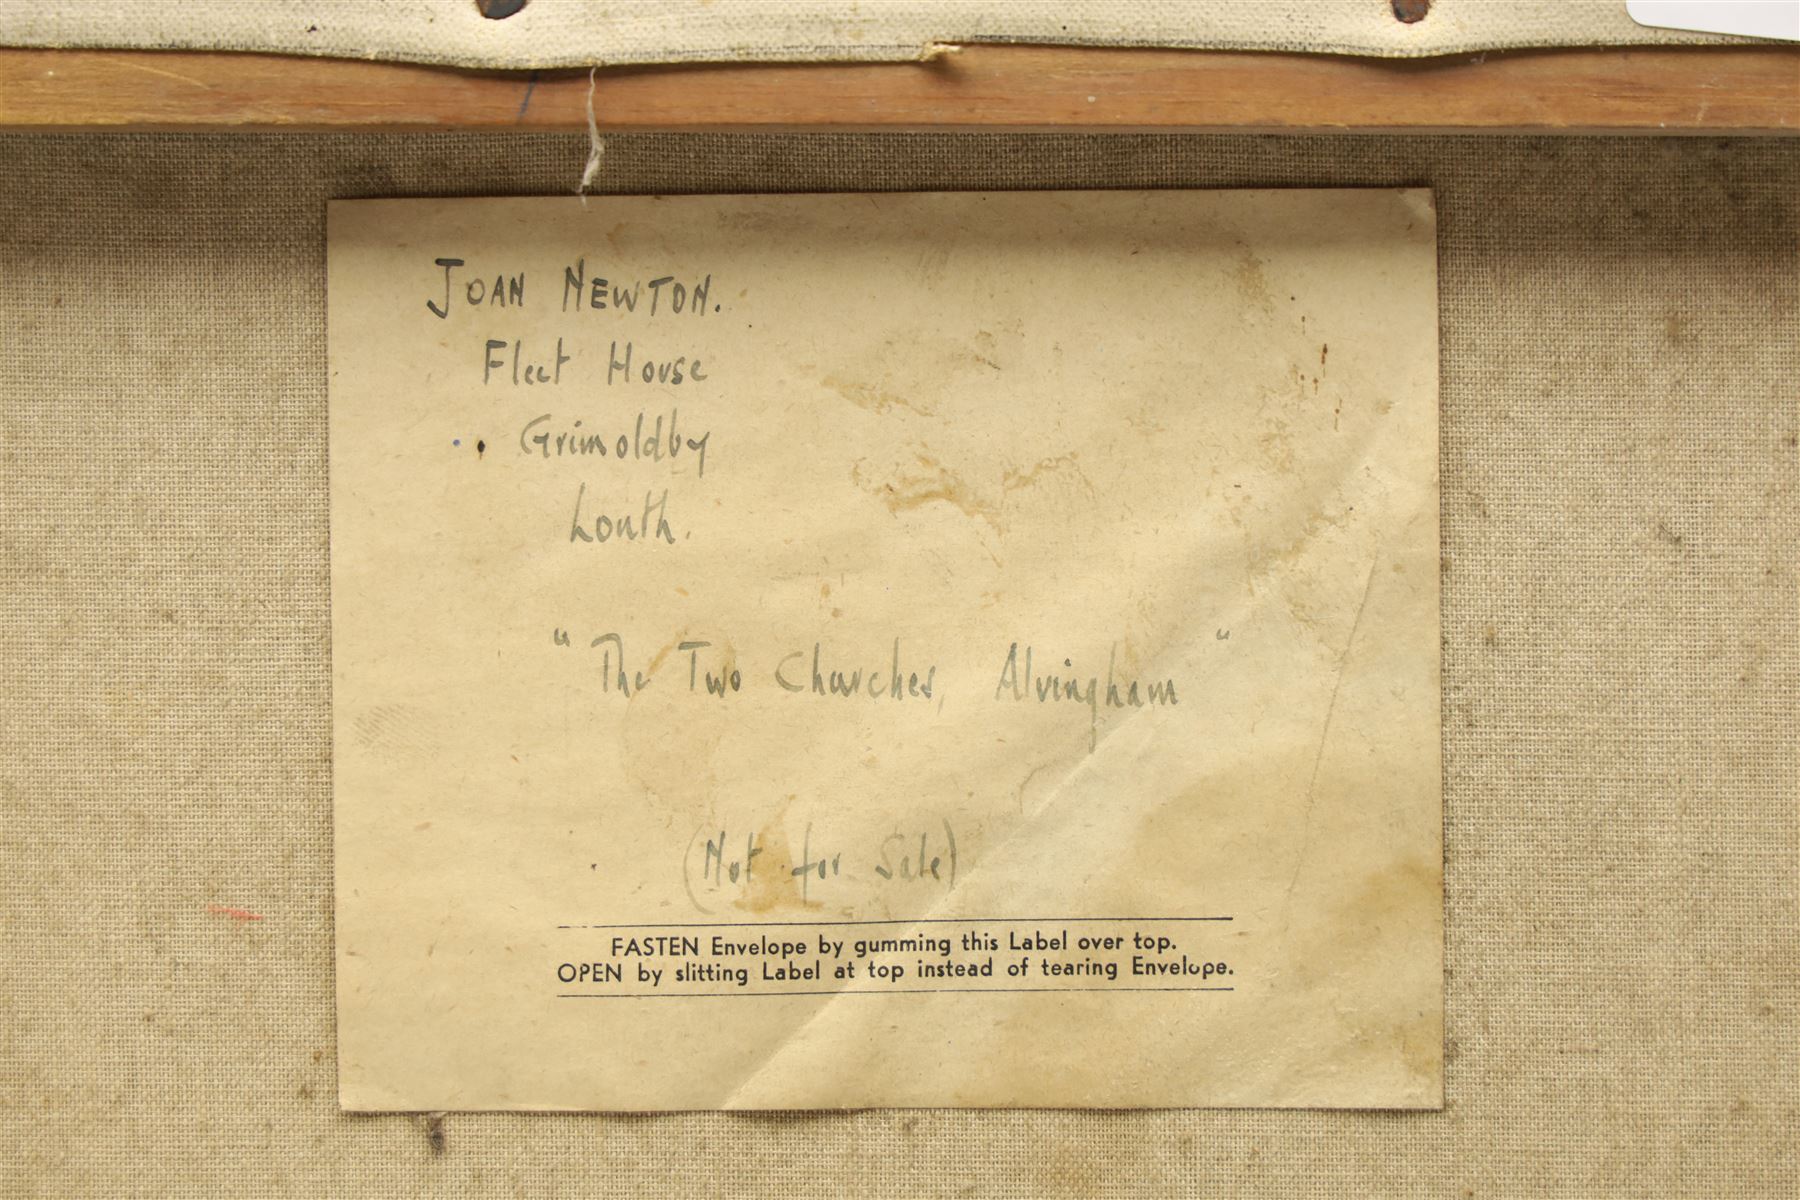 JOAN NEWTON.
Fleet House
Grimoldby
Louth.
"The Two Churches, Alvingham"
(Not for Sale)
FASTEN Envelope by gumming this Label over top.
OPEN by slitting Label at top instead of tearing Envelope.